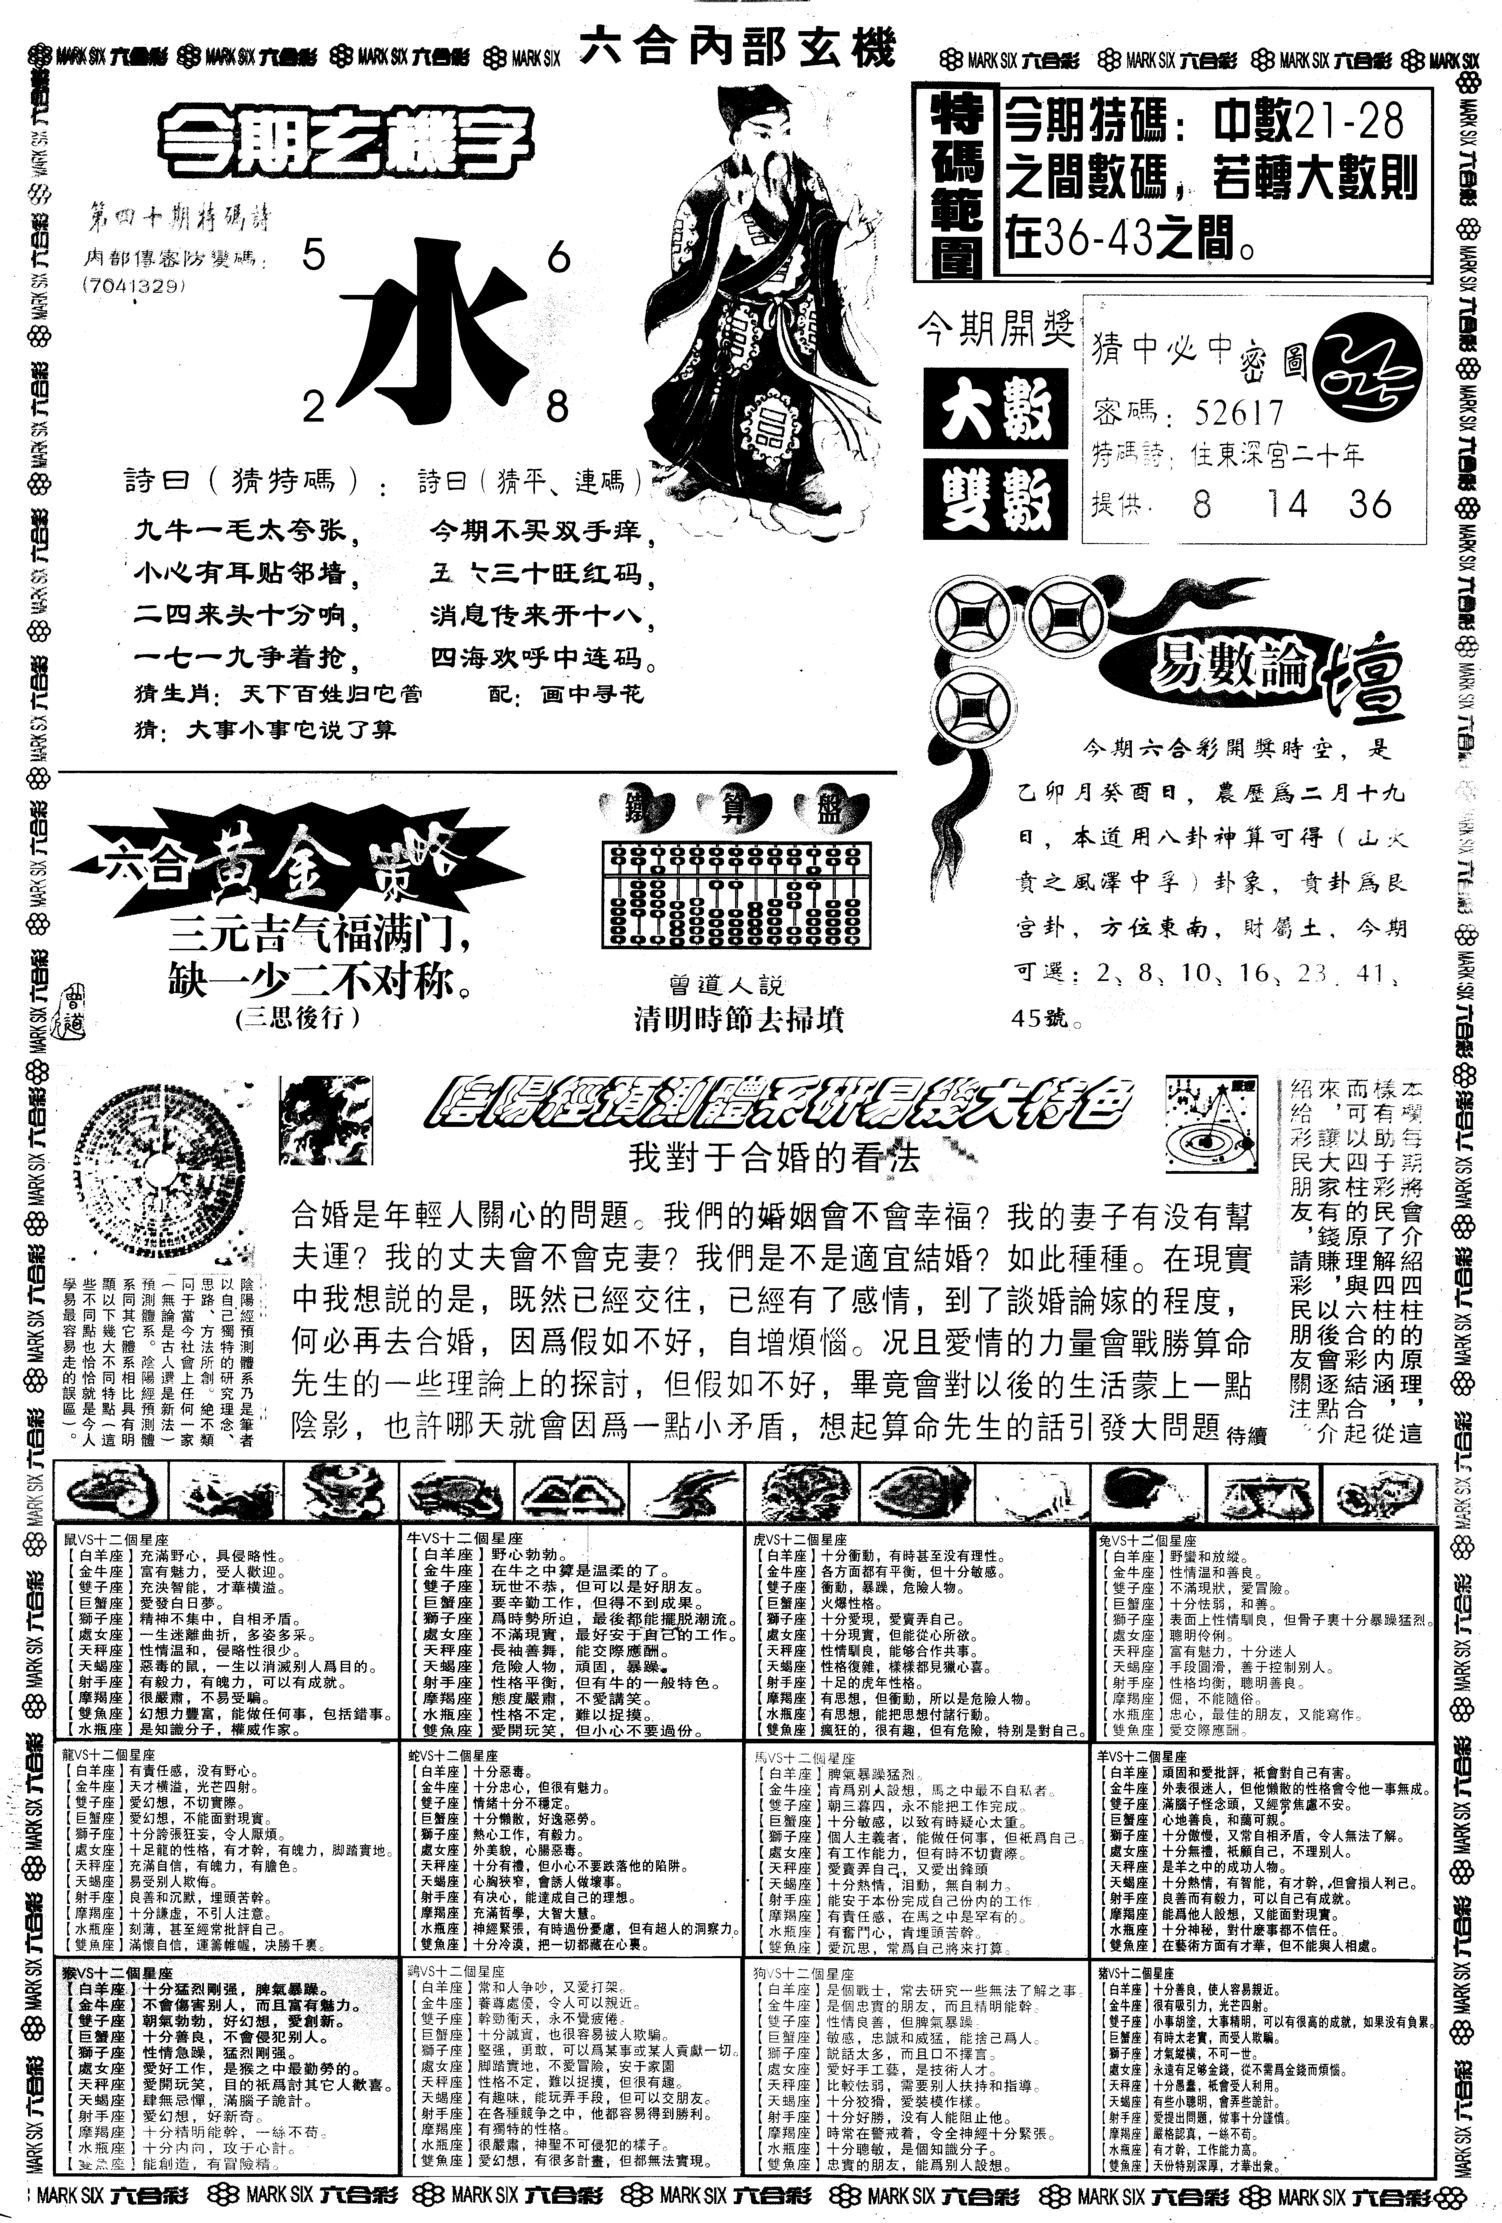 六合內部玄機
今期玄機字
第四十期特碼詩
内部傳密防變碼:
(7041329)
5
6
水
2
8
詩曰(猜特碼):
九牛一毛太夸张,
小心有耳贴邻墙,
二四来头十分响,
一七一九争着抢,
詩曰(猜平、連碼)
今期不买双手痒,
五六三十旺红码,
消息传来开十八,
四海欢呼中连码。
猜生肖:天下百姓归它管
配:画中寻花
猜:大事小事它说了算
特碼範圍
今期特碼:中數21-28
之間數碼,若轉大數則
在36-43之間。
今期開獎
大數
雙數
猜中必中密圖
密碼:52617
特碼詩:住東深宮二十年
提供: 8 14 36
易數論壇
今期六合彩開獎時空,是
乙卯月癸酉日,農歷爲二月十九
日,本道用八卦神算可得(山火
賁之風澤中孚)卦象,賁卦爲艮
宫卦,方位東南,財屬土,今期
可選:2、8、10、16、23、41、
45號。
六合黃金策略
三元吉气福满门,
缺一少二不对称。
(三思後行)
曾道
鐵算盤
曾道人説
清明時節去掃墳
陰陽經預測體系研易幾大特色
我對于合婚的看法
合婚是年輕人關心的問題。我們的婚姻會不會幸福?我的妻子有没有幫
夫運?我的丈夫會不會克妻?我們是不是適宜結婚?如此種種。在現實
中我想説的是,既然已經交往,已經有了感情,到了談婚論嫁的程度,
何必再去合婚,因爲假如不好,自增煩惱。况且愛情的力量會戰勝算命
先生的一些理論上的探討,但假如不好,畢竟會對以後的生活蒙上一點
陰影,也許哪天就會因爲一點小矛盾,想起算命先生的話引發大問題 待續
本欄每期將會介紹四柱的原理,這
樣有助于彩民了解四柱的内涵,從
而可以四柱的原理與六合彩結合起
來,讓大家有錢賺,以後會逐點介
紹給彩民朋友,請彩民朋友關注
陰陽經預測體系乃是筆者
以自己獨特的研究理念、
思路、方法所創。絶不類
同于當今社會上任何一家
(無論是古人還是新法)
預測體系。陰陽經預測體
系同其它體系相比具有明
顯以下幾大不同特點(這
些不同點也恰恰就是今人
學易最容易走的誤區)。
鼠VS十二個星座
【白羊座】充滿野心,具侵略性。
【金牛座】富有魅力,受人歡迎。
【雙子座】充泱智能,才華橫溢。
【巨蟹座】愛發白日夢。
【獅子座】精神不集中,自相矛盾。
【處女座】一生迷離曲折,多姿多采。
【天秤座】性情温和,侵略性很少。
【天蝎座】惡毒的鼠,一生以消滅别人爲目的。
【射手座】有毅力,有魄力,可以有成就。
【摩羯座】很嚴肅,不易受騙。
【雙魚座】幻想力豐富,能做任何事,包括錯事。
【水瓶座】是知識分子,權威作家。
牛VS十二個星座
【白羊座】野心勃勃。
【金牛座】在牛之中算是温柔的了。
【雙子座】玩世不恭,但可以是好朋友。
【巨蟹座】要辛勤工作,但得不到成果。
【獅子座】爲時勢所迫,最後都能擺脱潮流。
【處女座】不滿現實,最好安于自己的工作。
【天秤座】長袖善舞,能交際應酬。
【天蝎座】危險人物,頑固,暴躁。
【射手座】性格平衡,但有牛的一般特色。
【摩羯座】態度嚴肅,不愛講笑。
【水瓶座】性格不定,難以捉摸。
【雙魚座】愛開玩笑,但小心不要過份。
虎VS十二個星座
【白羊座】十分衝動,有時甚至没有理性。
【金牛座】各方面都有平衡,但十分敏感。
【雙子座】衝動,暴躁,危險人物。
【巨蟹座】火爆性格。
【獅子座】十分愛現,愛賣弄自己。
【處女座】十分現實,但能從心所欲。
【天秤座】性情馴良,能够合作共事。
【天蝎座】性格復雜,樣樣都見獵心喜。
【射手座】十足的虎年性格。
【摩羯座】有思想,但衝動,所以是危險人物。
【水瓶座】有思想,能把思想付諸行動。
【雙魚座】瘋狂的,很有趣,但有危險,特别是對自己。
兔VS十二個星座
【白羊座】野蠻和放縱。
【金牛座】性情温和善良。
【雙子座】不滿現狀,愛冒險。
【巨蟹座】十分怯弱,和善。
【獅子座】表面上性情馴良,但骨子裏十分暴躁猛烈。
【處女座】聰明伶俐。
【天秤座】富有魅力,十分迷人
【天蝎座】手段圓滑,善于控制别人。
【射手座】性格均衡,聰明善良。
【摩羯座】倔,不能隨俗。
【水瓶座】忠心,最佳的朋友,又能寫作。
【雙魚座】愛交際應酬。
龍VS十二個星座
【白羊座】有責任感,没有野心。
【金牛座】天才横溢,光芒四射。
【雙子座】愛幻想,不切實際。
【巨蟹座】愛幻想,不能面對現實。
【獅子座】十分誇張狂妄,令人厭煩。
【處女座】十足龍的性格,有才幹,有魄力,脚踏實地。
【天秤座】充滿自信,有魄力,有膽色。
【天蝎座】易受别人欺侮。
【射手座】良善和沉默,埋頭苦幹。
【摩羯座】十分謙虚,不引人注意。
【水瓶座】刻薄,甚至經常批評自己。
【雙魚座】滿懷自信,運籌帷幄,决勝千裏。
蛇VS十二個星座
【白羊座】十分惡毒。
【金牛座】十分忠心,但很有魅力。
【雙子座】情緒十分不穩定。
【巨蟹座】十分懶散,好逸惡勞。
【獅子座】熱心工作,有毅力。
【處女座】外美貌,心腸惡毒。
【天秤座】十分有禮,但小心不要跌落他的陷阱。
【天蝎座】心胸狹窄,會誘人做壞事。
【射手座】有决心,能達成自己的理想。
【摩羯座】充滿哲學,大智大慧。
【水瓶座】神經緊張,有時過份憂慮,但有超人的洞察力。
【雙魚座】十分冷漠,把一切都藏在心裏。
馬VS十二個星座
【白羊座】脾氣暴躁猛烈。
【金牛座】肯爲别人設想,馬之中最不自私者。
【雙子座】朝三暮四,永不能把工作完成。
【巨蟹座】十分敏感,以致有時疑心太重。
【獅子座】個人主義者,能做任何事,但衹爲自己。
【處女座】有工作能力,但有時不切實際。
【天秤座】愛賣弄自己,又愛出鋒頭
【天蝎座】十分熱情,泪動,無自制力。
【射手座】能安于本份完成自己份内的工作。
【摩羯座】有責任感,在馬之中是罕有的。
【水瓶座】有奮鬥心,肯埋頭苦幹。
【雙魚座】愛沉思,常爲自己將來打算。
羊VS十二個星座
【白羊座】頑固和愛批評,衹會對自己有害。
【金牛座】外表很迷人,但他懶散的性格會令他一事無成。
【雙子座】滿腦子怪念頭,又經常焦慮不安。
【巨蟹座】心地善良,和藹可親。
【獅子座】十分傲慢,又常自相矛盾,令人無法了解。
【處女座】十分無禮,衹顧自己,不理别人。
【天秤座】是羊之中的成功人物。
【天蝎座】十分熱情,有智能,有才幹,但會損人利己。
【射手座】良善而有毅力,可以自己有成就。
【摩羯座】能爲他人設想,又能面對現實。
【水瓶座】十分神秘,對什麽事都不信任。
【雙魚座】在藝術方面有才華,但不能與人相處。
猴VS十二個星座
【白羊座】十分猛烈剛强,脾氣暴躁。
【金牛座】不會傷害别人,而且富有魅力。
【雙子座】朝氣勃勃,好幻想,愛創新。
【巨蟹座】十分善良,不會侵犯别人。
【獅子座】性情急躁,猛烈剛强。
【處女座】愛好工作,是猴之中最勤勞的。
【天秤座】愛開玩笑,目的衹爲討其它人歡喜。
【天蝎座】肆無忌憚,滿腦子詭計。
【射手座】愛幻想,好新奇。
【摩羯座】十分精明能幹,一絲不苟。
【水瓶座】十分内向,攻于心計。
【雙魚座】能創造,有冒險精。
鷄VS十二個星座
【白羊座】常和人争吵,又愛打架。
【金牛座】養尊處優,令人可以親近。
【雙子座】幹勁衝天,永不覺疲倦。
【巨蟹座】十分誠實,也很容易被人欺騙。
【獅子座】堅强,勇敢,可以爲某事或某人貢獻一切。
【處女座】脚踏實地,不愛冒險,安于家園
【天秤座】性格不定,難以捉摸,但很有趣。
【天蝎座】有趣味,能玩弄手段,但可以交朋友。
【射手座】在各種競争之中,他都容易得到勝利。
【摩羯座】有獨特的性格。
【水瓶座】很嚴肅,神聖不可侵犯的樣子。
【雙魚座】愛幻想,有很多計畫,但都無法實現。
狗VS十二個星座
【白羊座】是個戰士,常去研究一些無法了解之事。
【金牛座】是個忠實的朋友,而且精明能幹。
【雙子座】性情良善,但脾氣暴躁。
【巨蟹座】敏感,忠誠和威猛,能捨己爲人。
【獅子座】説話太多,而且口不擇言。
【處女座】愛好手工藝,是技術人才。
【天秤座】比較怯弱,需要别人扶持和指導。
【天蝎座】十分狡猾,愛裝模作樣。
【射手座】十分好勝,没有人能阻止他。
【摩羯座】時常在警戒着,令全神經十分緊張。
【水瓶座】十分聰敏,是個知識分子。
【雙魚座】忠實的朋友,能爲别人設想。
猪VS十二個星座
【白羊座】十分善良,使人容易親近。
【金牛座】很有吸引力,光芒四射。
【雙子座】小事胡塗,大事精明,可以有很高的成就,如果没有負累。
【巨蟹座】有時太老實,而受人欺騙。
【獅子座】才氣縱横,不可一世。
【處女座】永遠有足够金錢,從不需爲金錢而煩惱。
【天秤座】十分愚蠢,衹會受人利用。
【天蝎座】有些小聰明,會弄些詭計。
【射手座】愛提出問題,做事十分謹慎。
【摩羯座】嚴格認真,一絲不苟。
【水瓶座】有才幹,工作能力高。
【雙魚座】天份特别深厚,才華出衆。
MARK SIX 六合彩 MARK SIX 六合彩 MARK SIX 六合彩 MARK SIX 六合彩 MARK SIX 六合彩 MARK SIX 六合彩 MARK SIX 六合彩